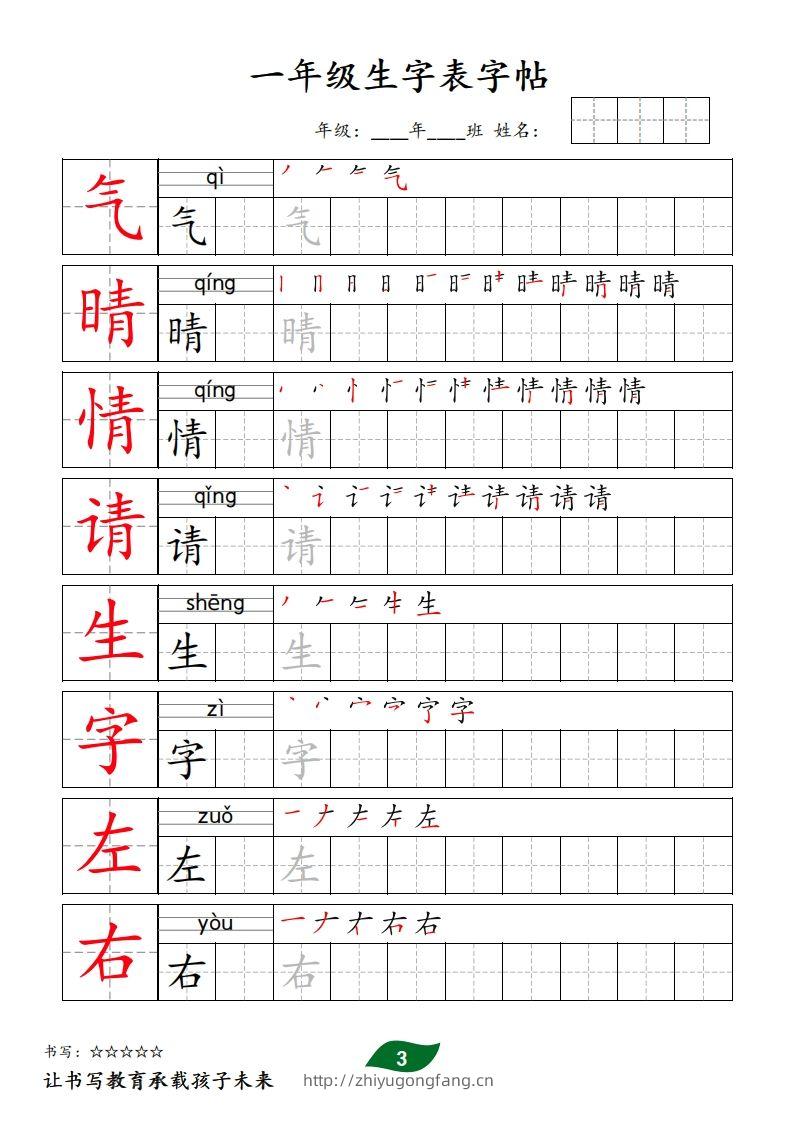 一年级生字表字帖
年级：____年____班 姓名：
气 qì
气 气
晴 qíng
晴 晴
情 qíng
情 情
请 qǐng
请 请
生 shēng
生 生
字 zì
字 字
左 zuǒ
左 左
右 yòu
右 右
书写：☆☆☆☆☆
3
让书写教育承载孩子未来 http://zhiyugongfang.cn